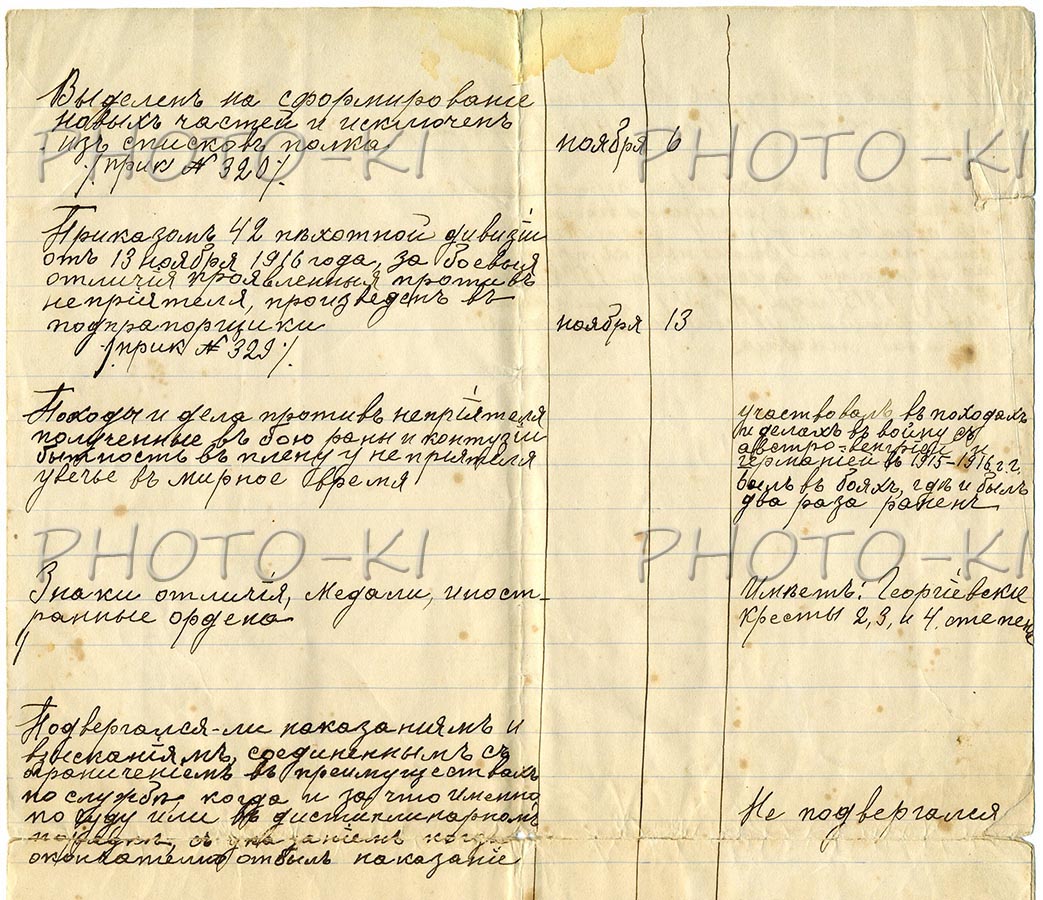 Выделенъ на сформированіе
новыхъ частей и исключенъ
изъ списковъ полка
/прик № 320/.
ноября 6
Приказомъ 42 пѣхотной дивизіи
отъ 13 ноября 1916 года, за боевыя
отличія проявленныя противъ
непріятеля, произведенъ въ
подпрапорщики
/прик № 329/.
ноября 13
Походы и дела противъ непріятеля
полученные въ бою раны и контузіи
бытность въ плену у непріятеля
увечье въ мирное время
участвовалъ въ походахъ
и делахъ въ войну съ
австро-венгріей и
германіей в 1915-1916 г.г.
былъ въ бояхъ, гдѣ и былъ
два раза раненъ
Знаки отличія, медали, иност-
ранные ордена
Имѣетъ: Георгіевскіе
кресты 2, 3, и 4. степени
Подвергался-ли наказаніямъ и
взысканіямъ, соединеннымъ съ
ограниченіемъ въ преимуществахъ
по службѣ, когда и за что именно
по суду или въ дистиплинарномъ
порядкѣ, съ указаніемъ когда
окончателно отбылъ наказаніе
Не подвергался
PHOTO-KI PHOTO-KI
PHOTO-KI PHOTO-KI